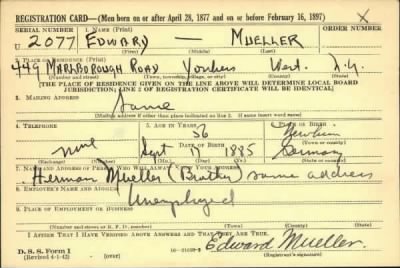 REGISTRATION CARD—(Men born on or after April 28, 1877 and on or before February 16, 1897)
SERIAL NUMBER 1. NAME (Print) ORDER NUMBER
U 2077 EDWARD — MUELLER
(First) (Middle) (Last)
2. PLACE OF RESIDENCE (Print)
449 MARLBOROUGH ROAD Yonkers West. N.Y.
(Number and street) (Town, township, village, or city) (County) (State)
[THE PLACE OF RESIDENCE GIVEN ON THE LINE ABOVE WILL DETERMINE LOCAL BOARD
JURISDICTION; LINE 2 OF REGISTRATION CERTIFICATE WILL BE IDENTICAL]
3. MAILING ADDRESS
Same
(Mailing address if other than place indicated on line 2. If same insert word same)
4. TELEPHONE 5. AGE IN YEARS 6. PLACE OF BIRTH
56
DATE OF BIRTH
none Sept 17 1885 Germany
(Exchange) (Number) (Mo.) (Day) (Yr.) (State or country)
7. NAME AND ADDRESS OF PERSON WHO WILL ALWAYS KNOW YOUR ADDRESS
Herman Mueller (Brother) same address
8. EMPLOYER'S NAME AND ADDRESS
Unemployed
9. PLACE OF EMPLOYMENT OR BUSINESS
(Number and street or R. F. D. number) (Town) (County) (State)
I AFFIRM THAT I HAVE VERIFIED ABOVE ANSWERS AND THAT THEY ARE TRUE.
D. S. S. Form 1
(Revised 4-1-42) (over)
Edward Mueller.
(Registrant's signature)